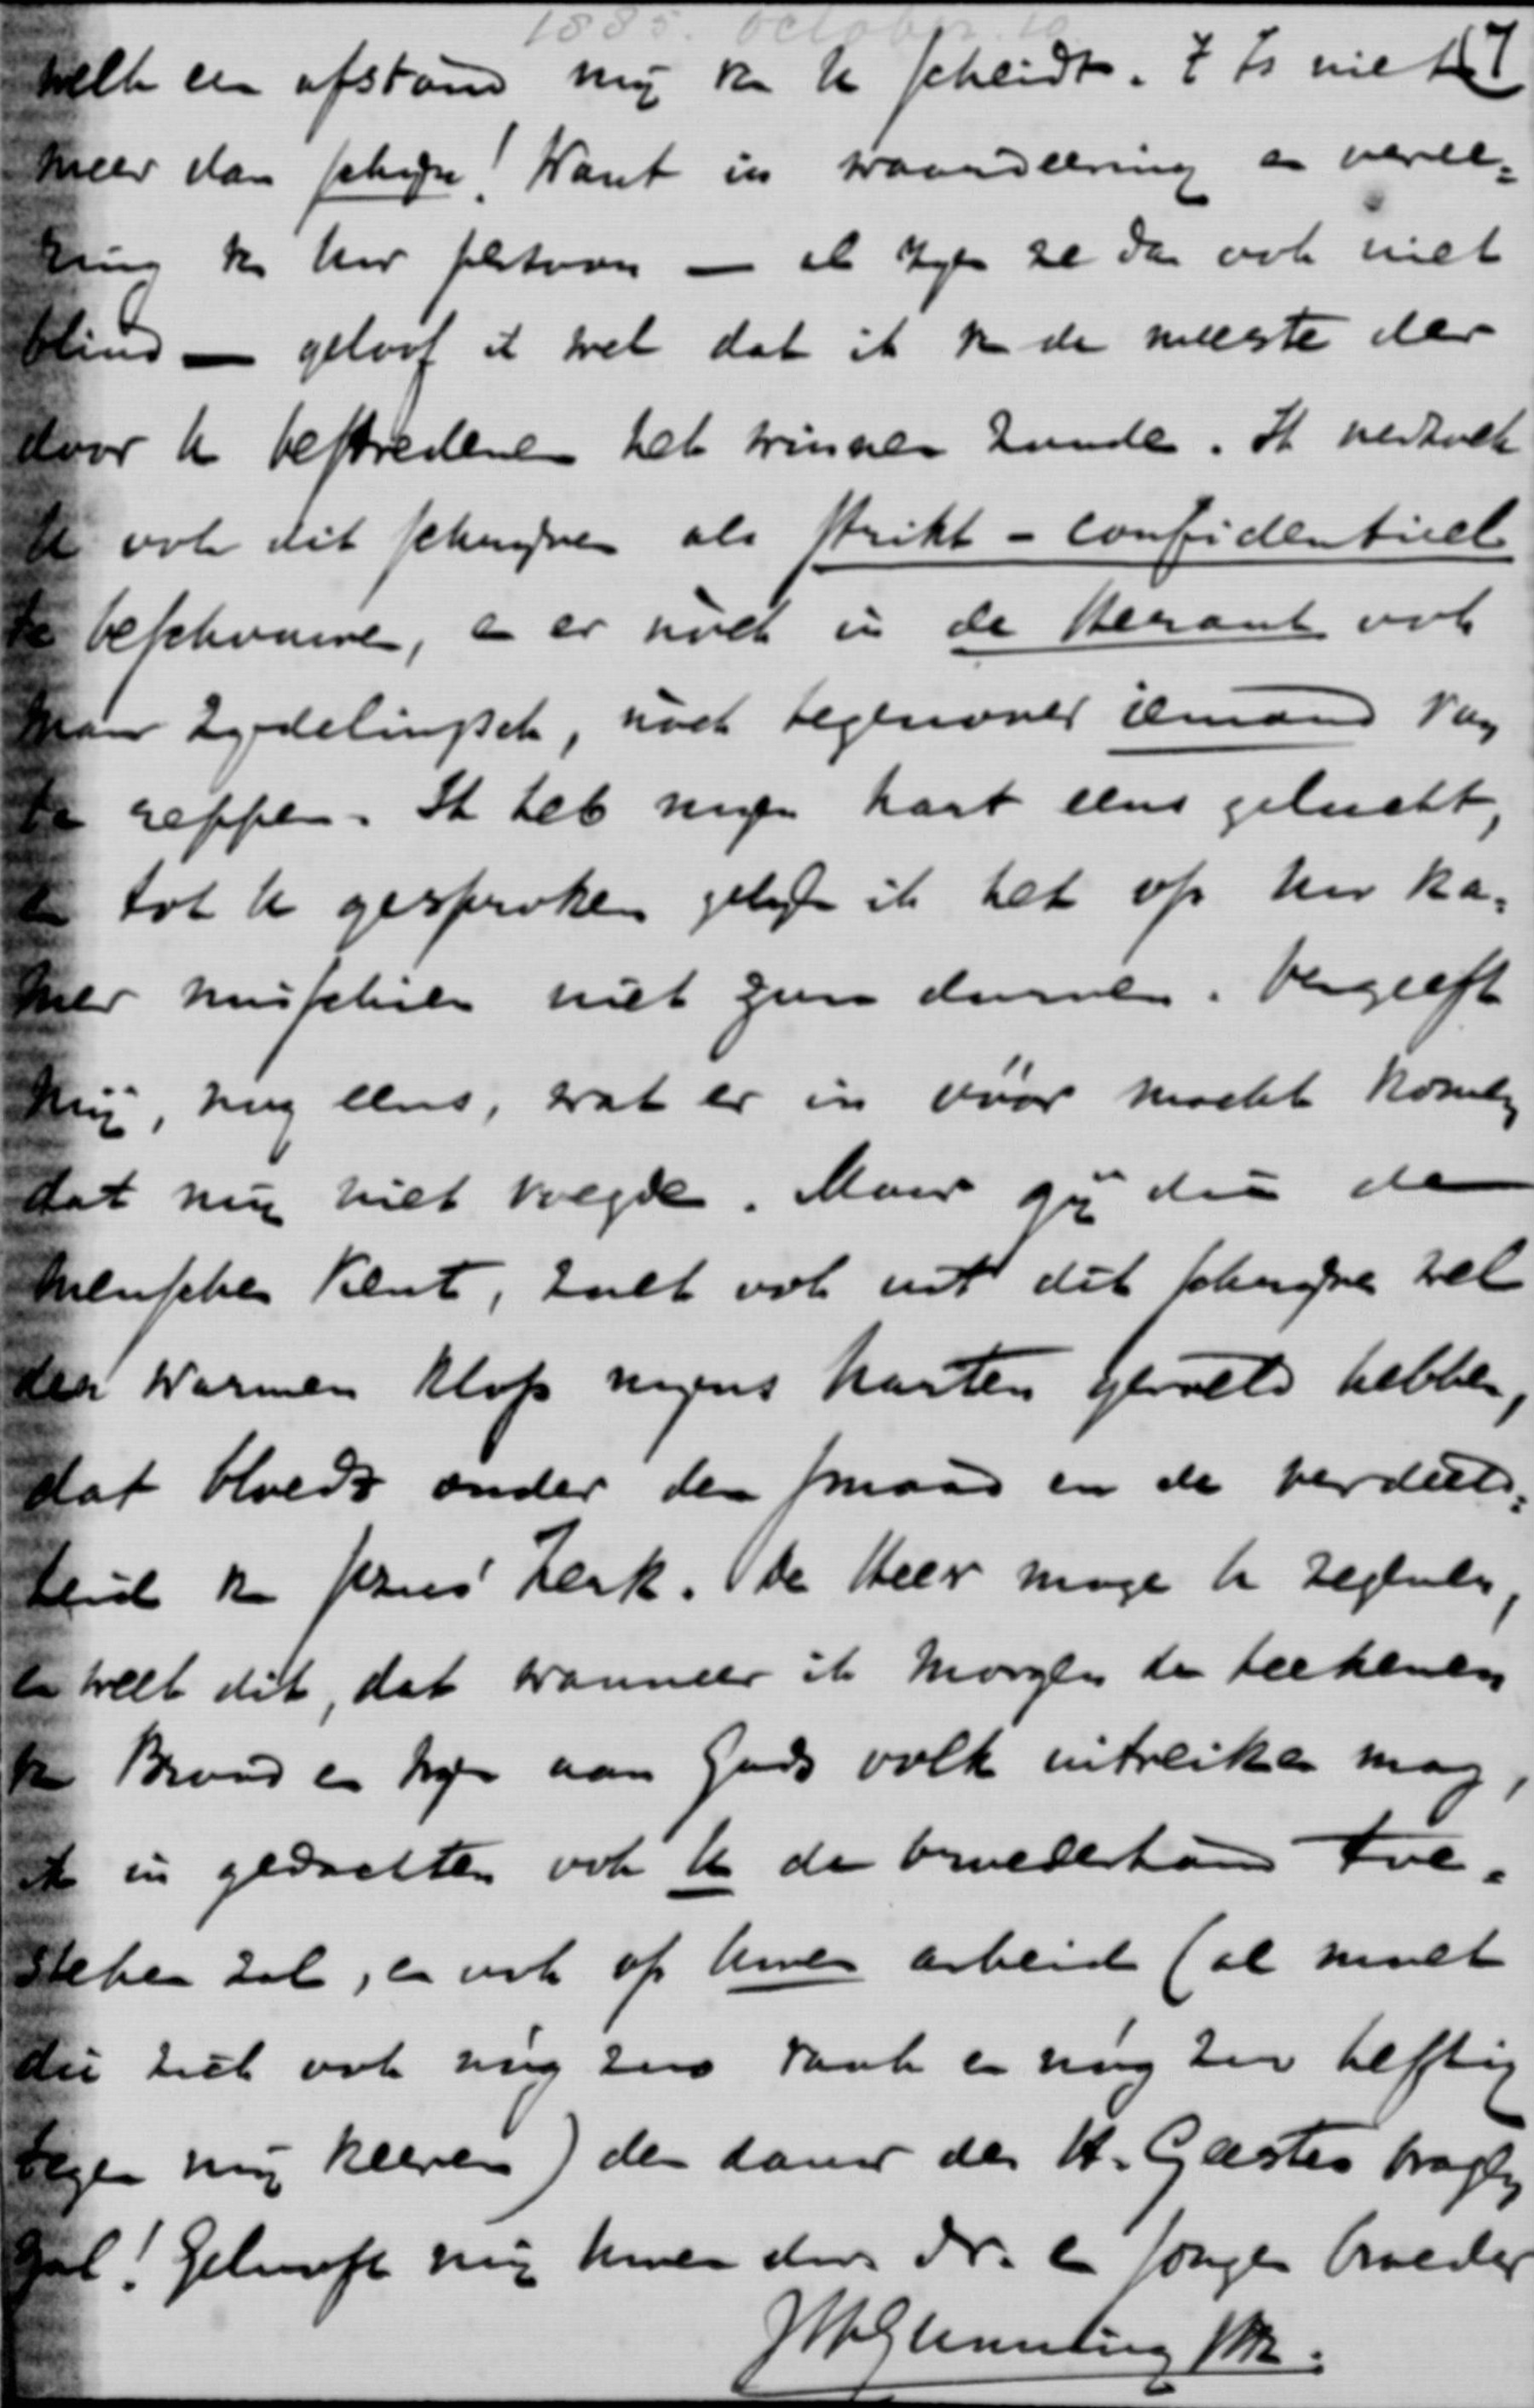 1885. October. 10
welk een afstand mij van U scheidt. 't Is niet
meer dan schijn! Want in waardeering en veree-
ring van Uw persoon — al zijn ze dan ook niet
blind — geloof ik wel dat ik van de meeste der
door U bestredenen het winnen zoude. Ik verzoek
U ook dit schrijven als strikt - confidentieel
te beschouwen, en er noch in de Heraut ook
maar zijdelingsch, noch tegenover iemand van
te reppen. Ik heb mijn hart eens gelucht,
en tot U gesproken gelijk ik het op Uw ka-
mer misschien niet zou durven. Vergeeft
mij, nog eens, wat er in vóór mocht komen
dat mij niet voegde. Maar gij die de
menschen kent, zult ook uit dit schrijven wel
den warmen klop mijns harten gevoeld hebben,
dat bloedt onder den smaad en de verdeeld-
heid van Jezus' Kerk. De Heer moge U zegenen,
en weet dit, dat wanneer ik morgen de teekenen
van Brood en wijn aan Gods volk uitreiken mag,
ik in gedachten ook U de broederhand toe-
steken zal, en ook op Uwen arbeid (al moet
die zich ook nóg zoo vaak en nóg zoo heftig
tegen mij keeren) den dauw des H. Geestes vragen
zal! Geloof mij Uwen dw. dr. en jongen broeder
JHGunning JHz.